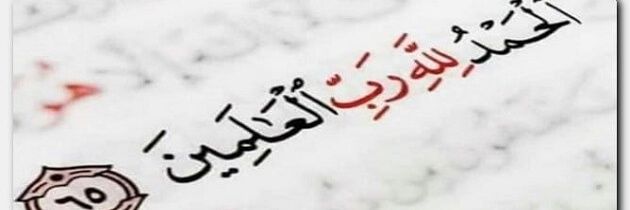 الْحَمْدُ لِلَّهِ رَبِّ الْعَالَمِينَ ٦٥